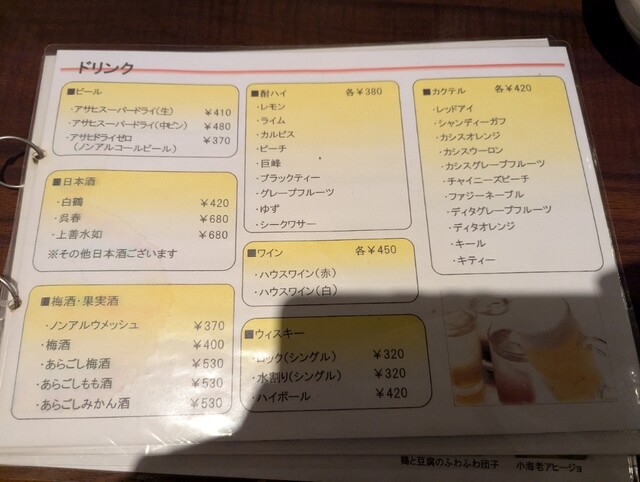 ドリンク
■ビール
・アサヒスーパードライ(生) ￥410
・アサヒスーパードライ(中ビン) ￥480
・アサヒドライゼロ ￥370
(ノンアルコールビール)
■日本酒
・白鶴 ￥420
・呉春 ￥680
・上善水如 ￥680
※その他日本酒ございます
■梅酒・果実酒
・ノンアルウメッシュ ￥370
・梅酒 ￥400
・あらごし梅酒 ￥530
・あらごしもも酒 ￥530
・あらごしみかん酒 ￥530
■酎ハイ 各￥380
・レモン
・ライム
・カルピス
・ピーチ
・巨峰
・ブラックティー
・グレープフルーツ
・ゆず
・シークワサー
■ワイン 各￥450
・ハウスワイン(赤)
・ハウスワイン(白)
■ウィスキー
・ロック(シングル) ￥320
・水割り(シングル) ￥320
・ハイボール ￥420
■カクテル 各￥420
・レッドアイ
・シャンディーガフ
・カシスオレンジ
・カシスウーロン
・カシスグレープフルーツ
・チャイニーズピーチ
・ファジーネーブル
・ディタグレープフルーツ
・ディタオレンジ
・キール
・キティー
鶏と豆腐のふわふわ団子
小海老アヒージョ